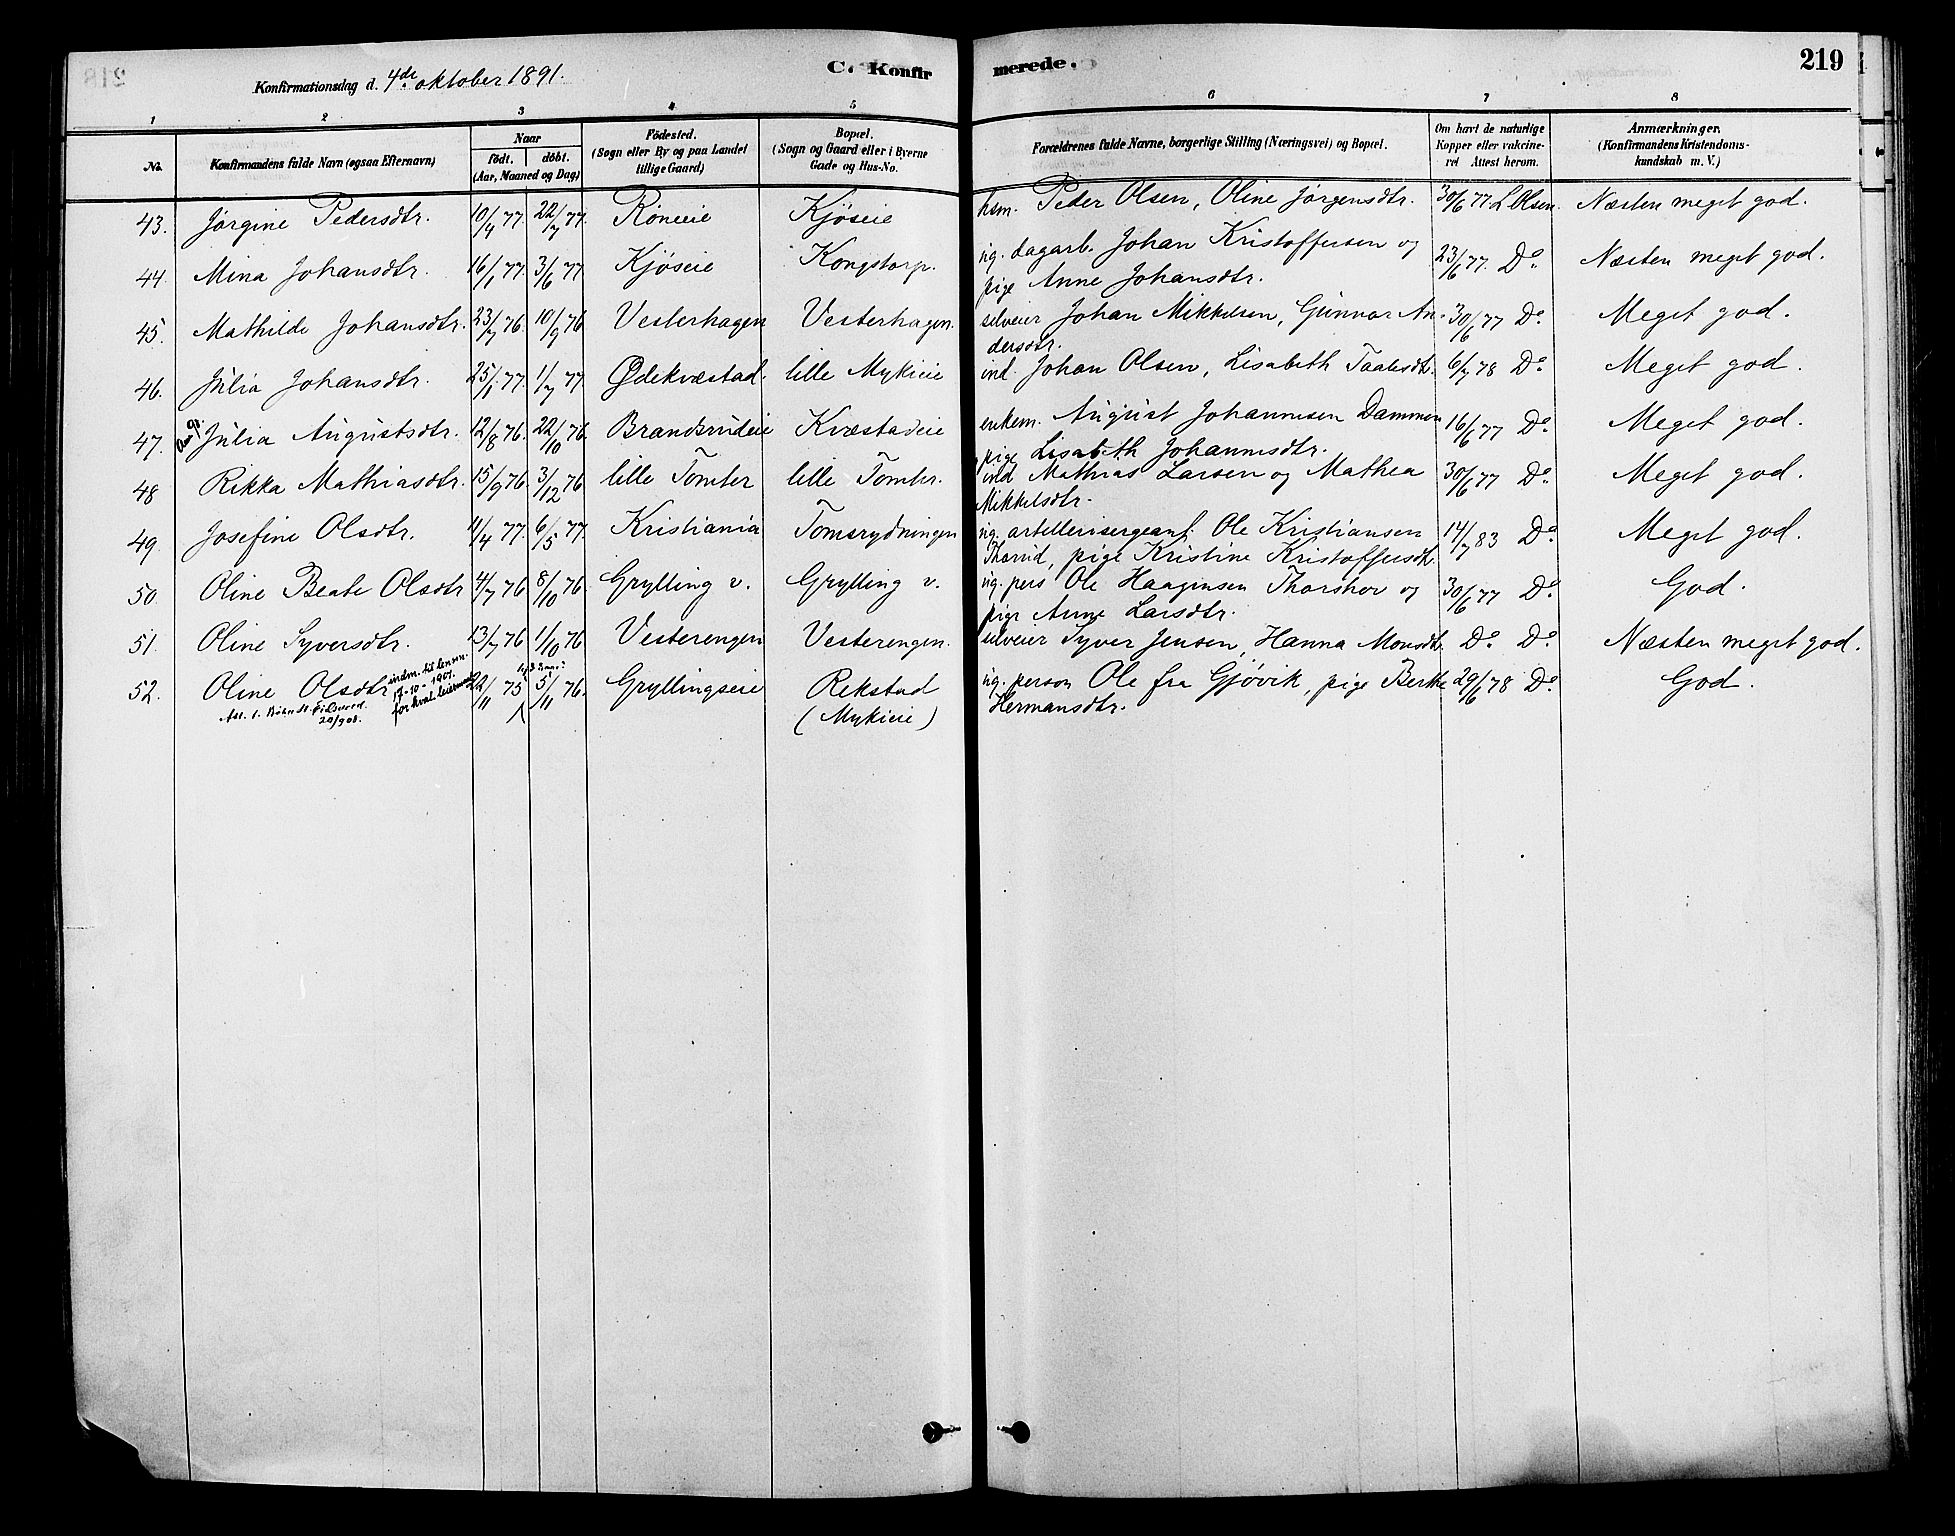 219
Konfirmationsdag d. 4de oktober 1891.
C. Konfirmerede.
1 2 3 4 5 6 7 8
No. Konfirmandens fulde Navn (ogsaa Efternavn) Naar födt. döbt. (Aar, Maaned og Dag) Födested. (Sogn eller By og paa Landet tillige Gaard) Bopæl. (Sogn og Gaard eller i Byerne Gade og Hus-No. Forældrenes fulde Navne, borgerlige Stilling (Næringsvei) og Bopæl. Om havt de naturlige Kopper eller vakcineret Attest herom. Anmærkninger. (Konfirmandens Kristendomskundskab m. V.)
43. Jørgine Pedersdtr. 10/4 77. 22/7 77. Röneeie Kjöseie hsm. Peder Olsen, Oline Jørgensdtr. 30/6 77 L Olsen. Næsten meget god.
44. Mina Johansdtr. 16/1 77. 3/6 77 Kjöseie Kongstorp. ug. dagarb. Johan Kristoffersen og
pige Anne Johansdtr. 23/6 77. Do. Næsten meget god.
45. Mathilde Johansdtr. 23/7 76. 10/9 76 Vesterhagen Vesterhagen. selveier Johan Mikkelsen, Gunnor An-
dersdtr. 30/6 77 Do. Meget god.
46. Julia Johansdtr. 25/1 77. 1/7 77 Ødekvæstad. lille Mykieie ind. Johan Olsen, Lisabeth Taalesdtr. 6/7 78 Do. Meget god.
47. Julia Augustsdtr. 12/8 76. 22/10 76. Brandsrudeie Kvæstadeie enkem. August Johannesen Dammen
pige Lisabeth Johannesdtr. 16/6 77 Do. Meget god.
48 Rikka Mathiasdtr. 15/9 76. 3/12 76 lille Tomter lille Tomter. ind Mathias Larsen og Mathea
Mikkelsdtr. 30/6 77 Do. Meget god.
49. Josefine Olsdtr. 11/4 77. 6/5 77. Kristiania Tomsrydningen ug. artellerisergeant Ole Kristiansen
pige Kristine Kristoffersdtr. 14/7 83 Do. Meget god.
50. Oline Beate Olsdtr 4/7 76 8/10 76 Grylling v. Grylling v. ug. pers Ole Haagensen Thorshov og
pige Anne Larsdtr. 30/6 77 Do. God.
51. Oline Syversdtr. 13/7 76 1/10 76 Vesterengen Vesterengen. selveier Syver Jensen, Hanna Monsdtr. Do. Do. Næsten meget god.
52. Oline Olsdtr 22/11 75 5/11 76. Gryllingseie Rekstad
(Mykieie) ug. person Ole fra Gjøvik, pige Berthe
Hermansdtr. 29/6 78 Do. God.
17-10-1901.